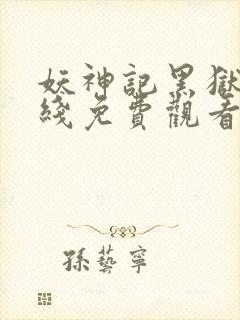 妖神記黑獄
綫免費觀看
孫藝寧